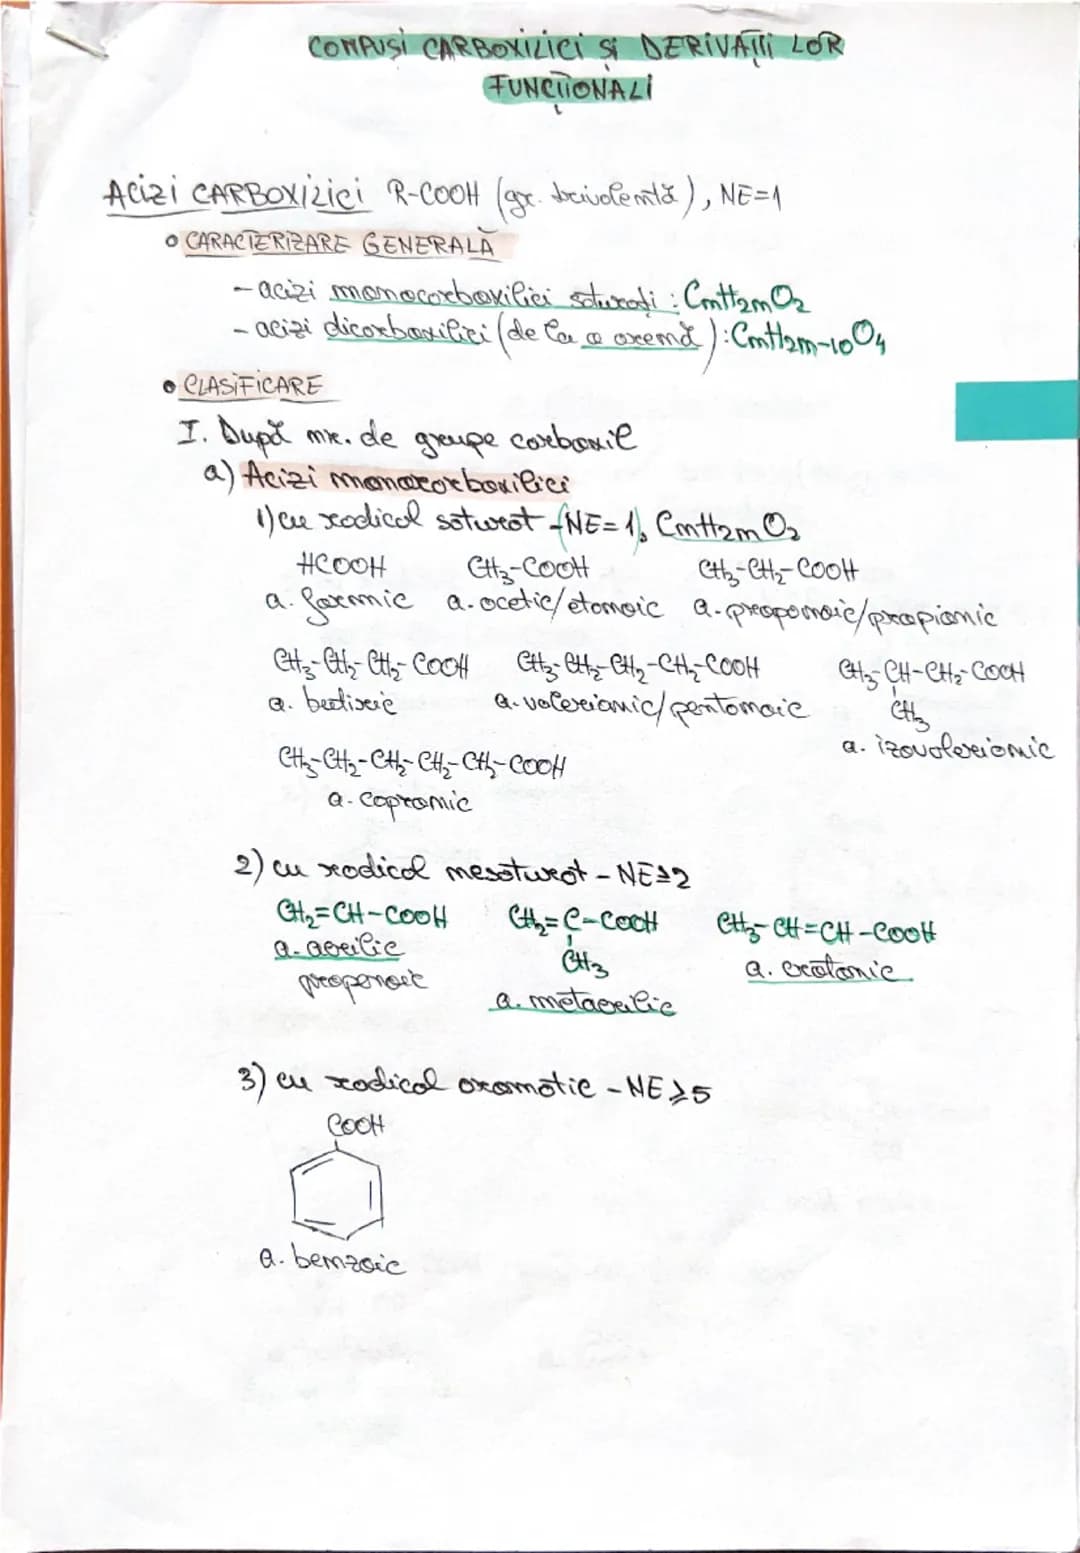 COMPUȘI CARBOXILICI ȘI DERIVAȚII LOR
FUNCȚIONALI
ACIZI CARBOXILICI R-COOH (gr. trivalentă), NE=1
• CARACTERIZARE GENERALĂ
- acizi monocarboxilici saturați : CnH2nO2
- acizi dicarboxilici (de la o arenă) : CnH2n-10O4
• CLASIFICARE
I. După nr. de grupe carboxil
a) Acizi monocarboxilici
1) cu radical saturat - (NE=1), CnH2nO2
HCOOH CH3-COOH CH3-CH2-COOH
a. formic a. acetic/etanoic a. propanoic/propionic
CH3-CH2-CH2-COOH CH3-CH2-CH2-CH2-COOH CH3-CH-CH2-COOH
a. butiric a. valerianic/pentanoic CH3
a. izovalerianic
CH3-CH2-CH2-CH2-CH2-COOH
a. capronic
2) cu radical nesaturat - NE≥2
CH2=CH-COOH CH2=C-COOH CH3-CH=CH-COOH
a. acrilic CH3 a. crotonic
propenoic
a. metacrilic
3) cu radical aromatic - NE≥5
COOH
a. benzoic